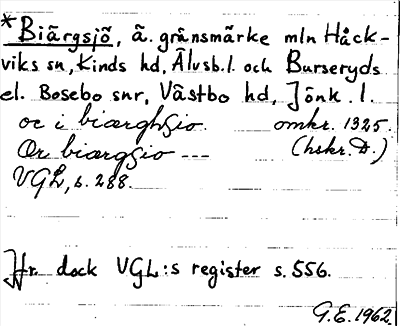 *Biärgsjö, ä. gränsmärke mln Håck-
viks sn, Kinds hd, Älvsb.l. och Burseryds
el. Bosebo snr, Västbo hd, Jönk. l.
oc i biærghsio. omkr. 1325.
Or biærgsio --- (hskr. D.)
VGL, s. 288.
Jfr dock VGL:s register s. 556.
G.E. 1962.